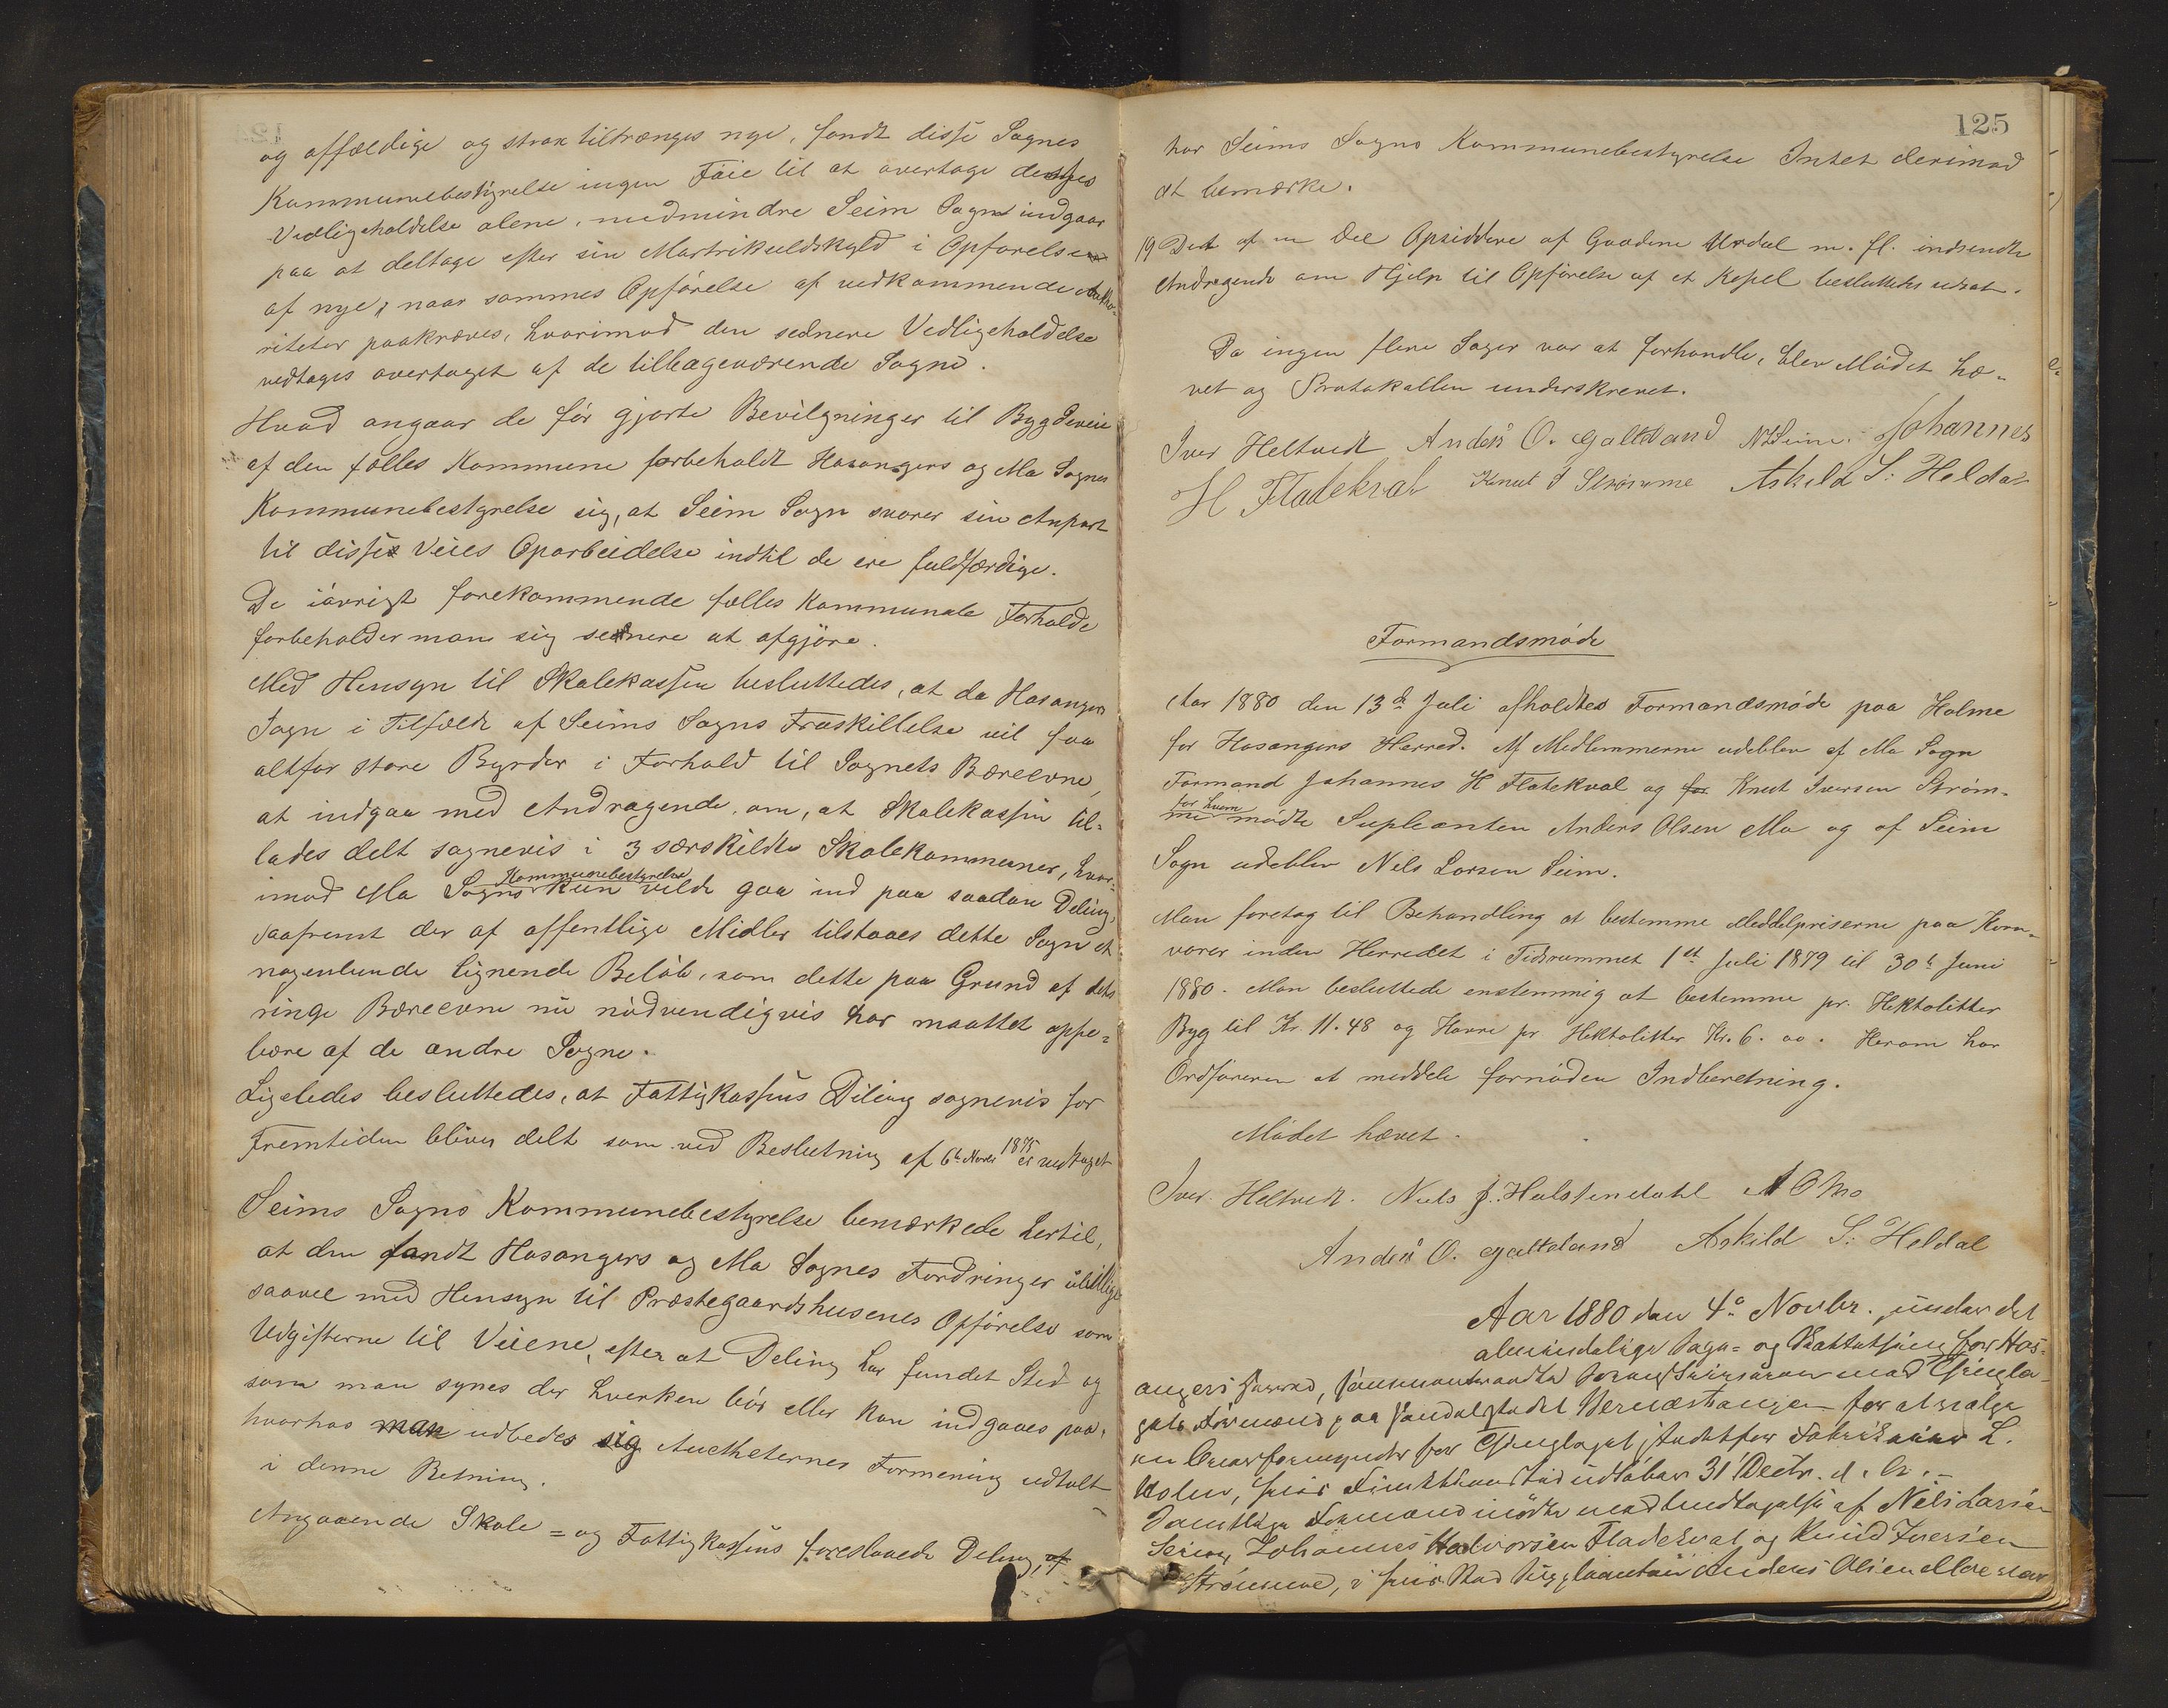 og affældige og strax tiltrænges nye, fandt disse Sognes
Kommunebestyrelse ingen Føie til at overtage dessges
Vedligeholdelse alene, medmindre Seim Sogn indgaar
paa at deltage efter sin Martrikuldskyld i Opførelsen
af nye, naar sammes Opførelse af vedkommende Autho-
riteter paakræves, hvorimod den sednere Vedligeholdelse
vedtages overtaget af de tilbageværende Sogne.
Hvad angaar de før gjorte Bevilgninger til Bygdeveie
af den fælles Kommune forbeholdt Hosangers og Mo Sognes
Kommunebestyrelse sig, at Seim Sogn svarer sin Anpart
til disses Veies Oparbeidelse indtil de ere fuldfærdige.
De iøvrigt forekommende fælles Kommunale Forholde
forbeholder man sig sednere at afgjøre.
Med Hensyn til Skolekassen besluttedes, at da Hosangers
Sogn i Tilfælde af Seims Sogns Fraskillelse vil faa
altfor store Byrder i Forhold til Sognets Bæreevne,
at indgaa med Andragende om, at Skolekassen til-
lades delt sognevis i 3 særskildte Skolekommuner, hvor-
imod Mo Sogns Kommunebestyrelse kun vilde gaa ind paa saadan Deling,
saafremt der af offentlige Midler tilstaaes dette Sogn et
nogenlunde lignende Beløb, som dette paa Grund af dets
ringe Bæreevne nu nødvendigvis har maattet oppe-
bære af de andre Sogne.
Ligeledes besluttedes, at Fattigkassens Deling sognevis for
Fremtiden bliver delt som ved Beslutning af 6te Novbr 1875 er vedtaget
Seims Sogns Kommunebestyrelse bemærkede hertil,
at den fandt Hosangers og Mo Sognes Fordringer ubillige
saavel med Hensyn til Præstegaardshusenes Opførelse som
Udgifterne til Veiene, efter at Deling har fundet Sted og
som man synes der hverken bør eller kan indgaaes paa,
hvorhos man udbedes sig Auctheternes Formening udtalt
i denne Retning.
Angaaende Skole- og Fattigkassens foreslaaede Deling, af
125
har Seims Sogns Kommunebestyrelse Intet derimod
at bemærke.
19 Det af en Del Opsiddere af Gaardene Urdal m. fl. indsendte
Andragende om Hjelp til Opførelse af et Kapel besluttedes udsat.
Da ingen flere Sager var at forhandle, blev Mødet hæ-
vet og Protokollen underskrevet.
Iver Heltvedt Anders O. Galteland N L Seim. Johannes
H Fladekval Knut I Strømme Askild S: Heldal
Formandsmøde
Aar 1880 den 13de Juli afholdtes Formandsmøde paa Holme
for Hosangers Herred. Af Medlemmerne udeblev af Mo Sogn
Formand Johannes H Flatekval og for Knut Iversen Strøm-
me for hvem mødte Supleanten Anders Olsen Mo og af Seim
Sogn udeblev Nels Larsen Seim.
Man foretog til Behandling at bestemme Meddelpriserne paa Korn-
varer inden Herredet i Tidsrummet 1ste Juli 1879 til 30te Juni
1880. Man besluttede enstemmig at bestemme pr. Hektolitter
Byg til Kr. 11.48 og Havre pr Hektolitter Kr. 6. 00. Herom har
Ordføreren at meddele fornøden Indberetning.
Mødet hævet.
Iver Heltvedt. Niels J. Halstendahl A O Mo
Anders O. Galteland Askild S: Heldal
Aar 1880 den 4de Novbr. under det
almindelige Sage- og Skattething for Hos-
angers Herred, sammentraadte Sorenskriveren med Thingla-
gets Formænd paa Thingstedet Vernæstangen for at vælge
en Overformynder for Thinglaget istedetfor Fabrikeier L.
Holm, hvis Funktionstid udløber 31 Decbr. d. A. -
Samtlige Formænd mødte med Undtagelse af Nils Larsen
Seim, Johannes Halvorsen Fladekval og Knud Iversen
Strømme, i hvis Sted Suppleanten Anders Olsen Moe var